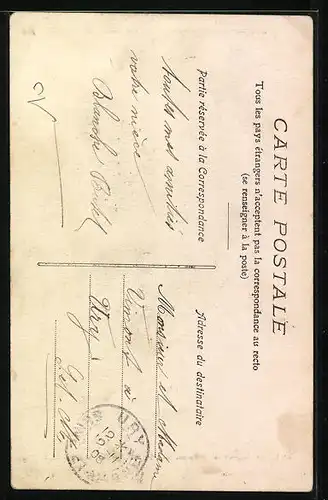 CARTE POSTALE
Tous les pays étrangers n'acceptent pas la correspondance au recto
(se renseigner à la poste)
Partie réservée à la Correspondance
Adresse du destinataire
toutes mes amitiés
votre nièce
Blanche
Monsieur et Madame
Vimont à
Ury
URY